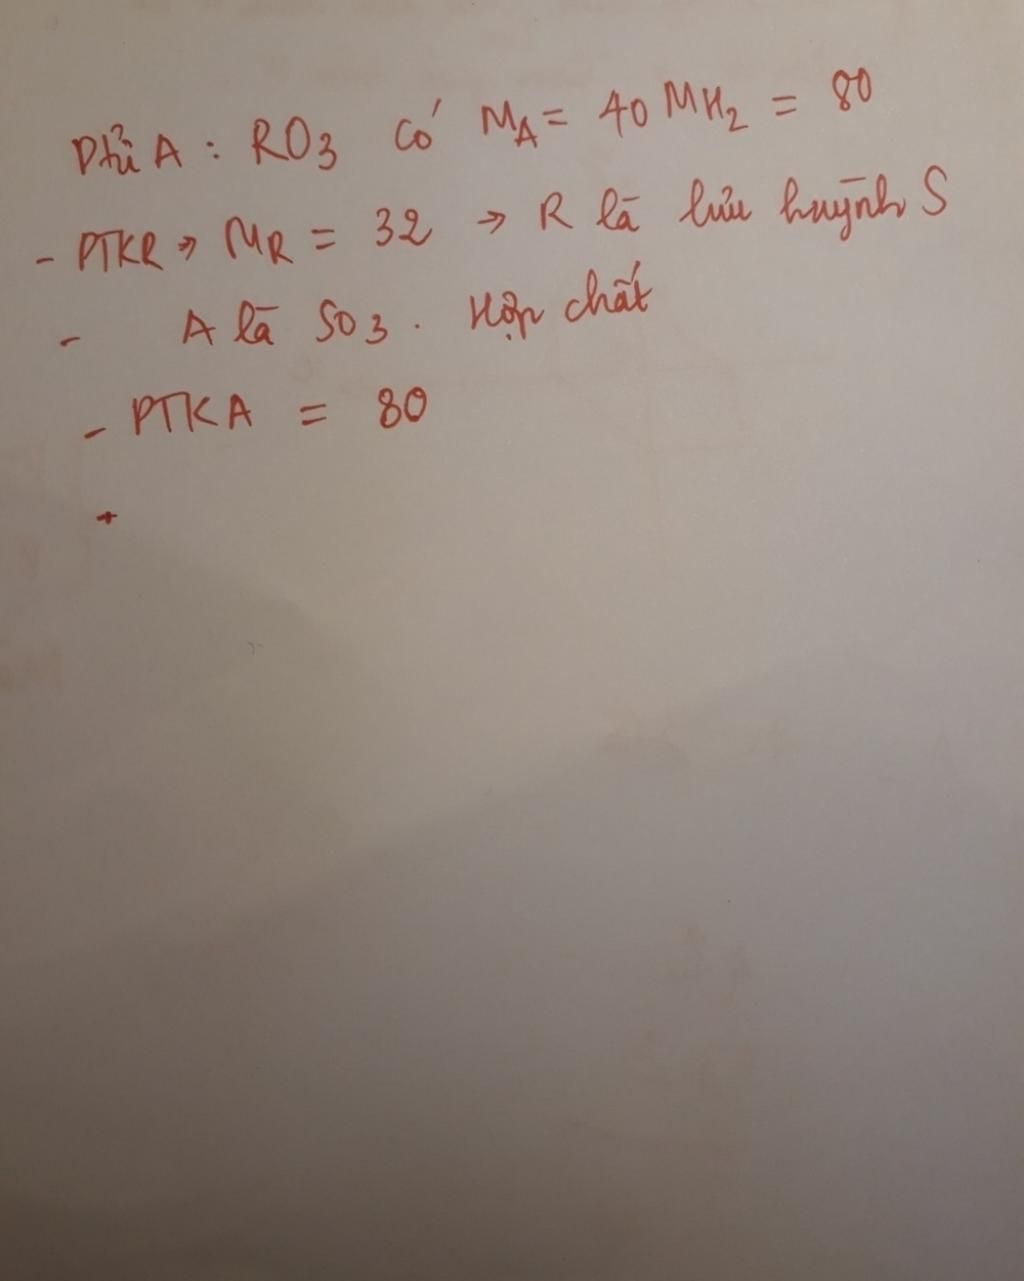 Ptử A : RO3 có MA = 40 MH2 = 80
- PTKR → MR = 32 → R là lưu huỳnh S
- A là SO3 . Hợp chất
- PTKA = 80
+